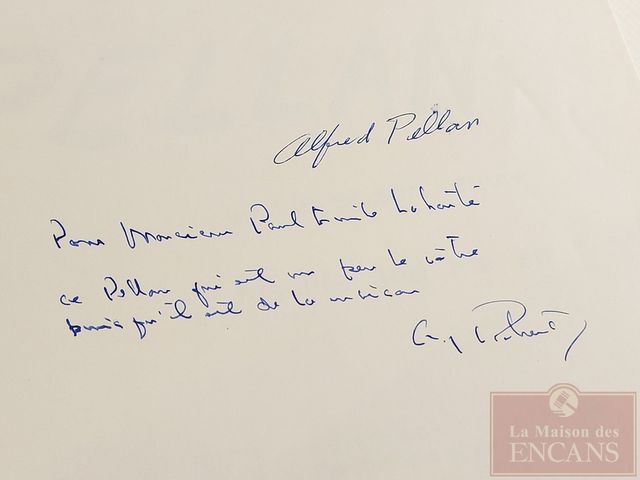 Alfred Pellan
Pour Monsieur Paul Emile Lahaité
ce Pellan qui est un peu le vôtre
puis qu'il est de la maison
Guy Robert
La Maison des
ENCANS